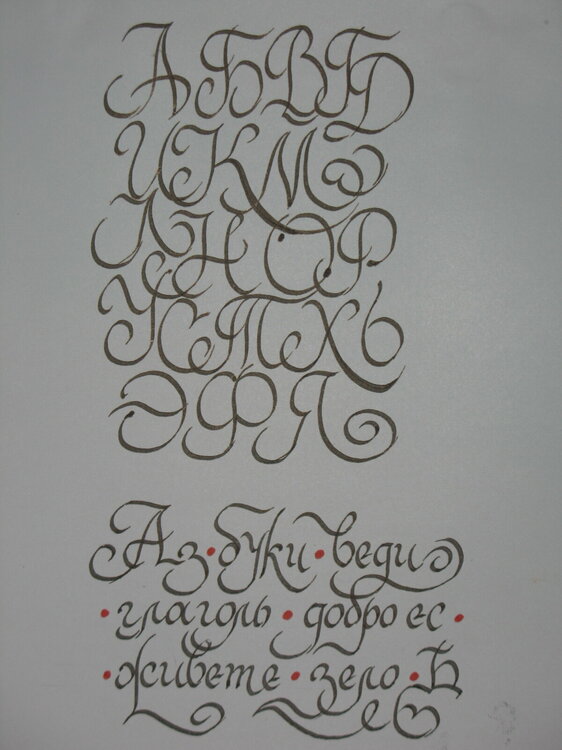 А Б В Б
И К М
Л Н О Р
У С Т Х Ь
Э Ф Я
Аз • буки • веди
• глаголь • добро ес •
• живете • зело •